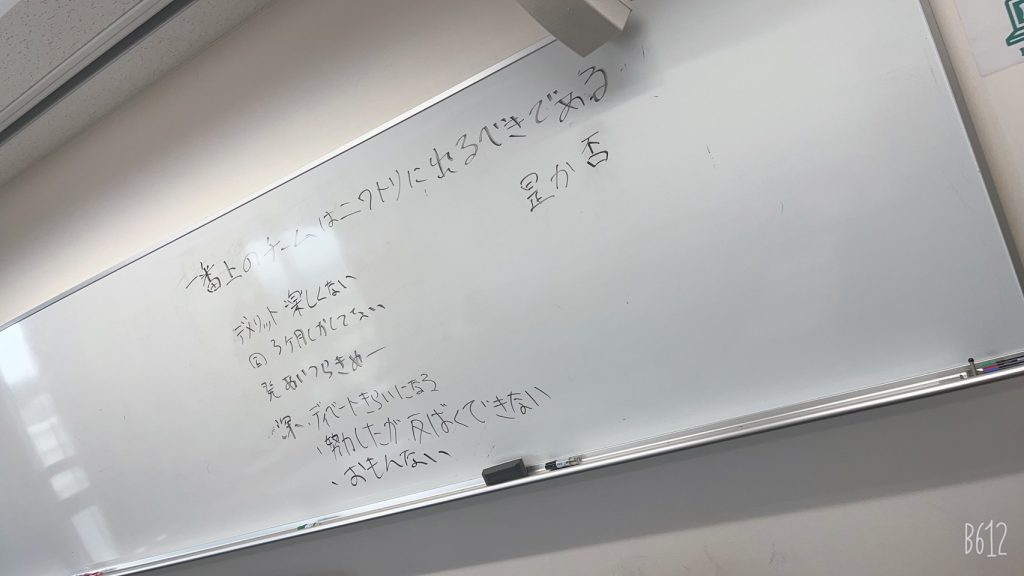 一番上のチームはニワトリに出るべきである
是か否
デメリット 楽しくない
固 3ヶ月しかしてない
発 あいつらきめー
深 、ディベートきらいになる
、努力したが反ばくできない
、おもんない
B612